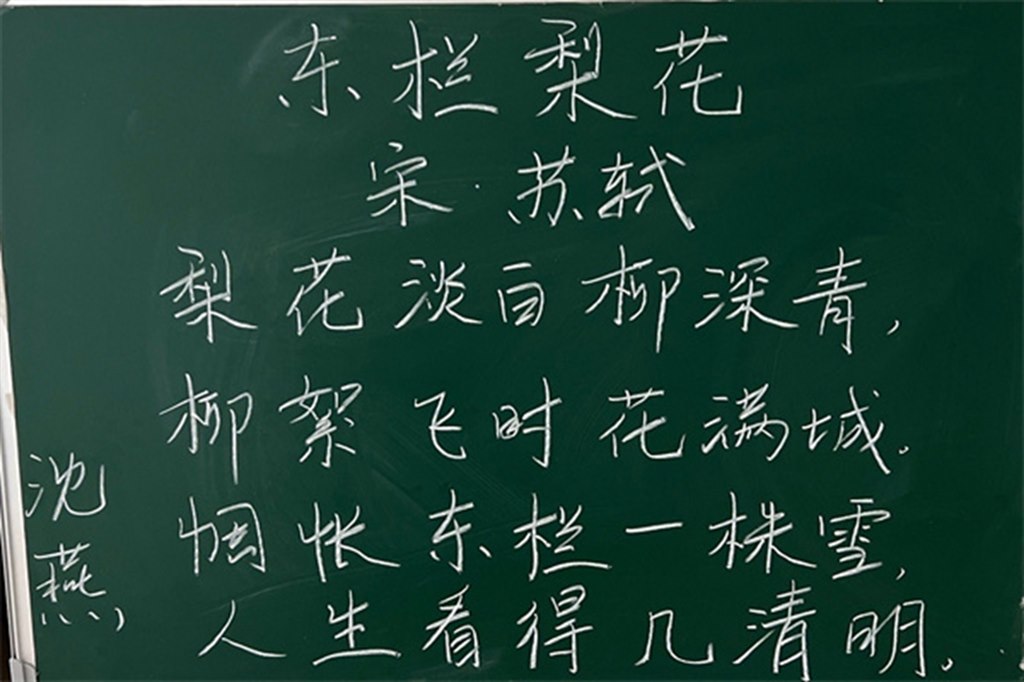 东栏梨花
宋·苏轼
梨花淡白柳深青,
柳絮飞时花满城.
惆怅东栏一株雪,
人生看得几清明.
沈燕